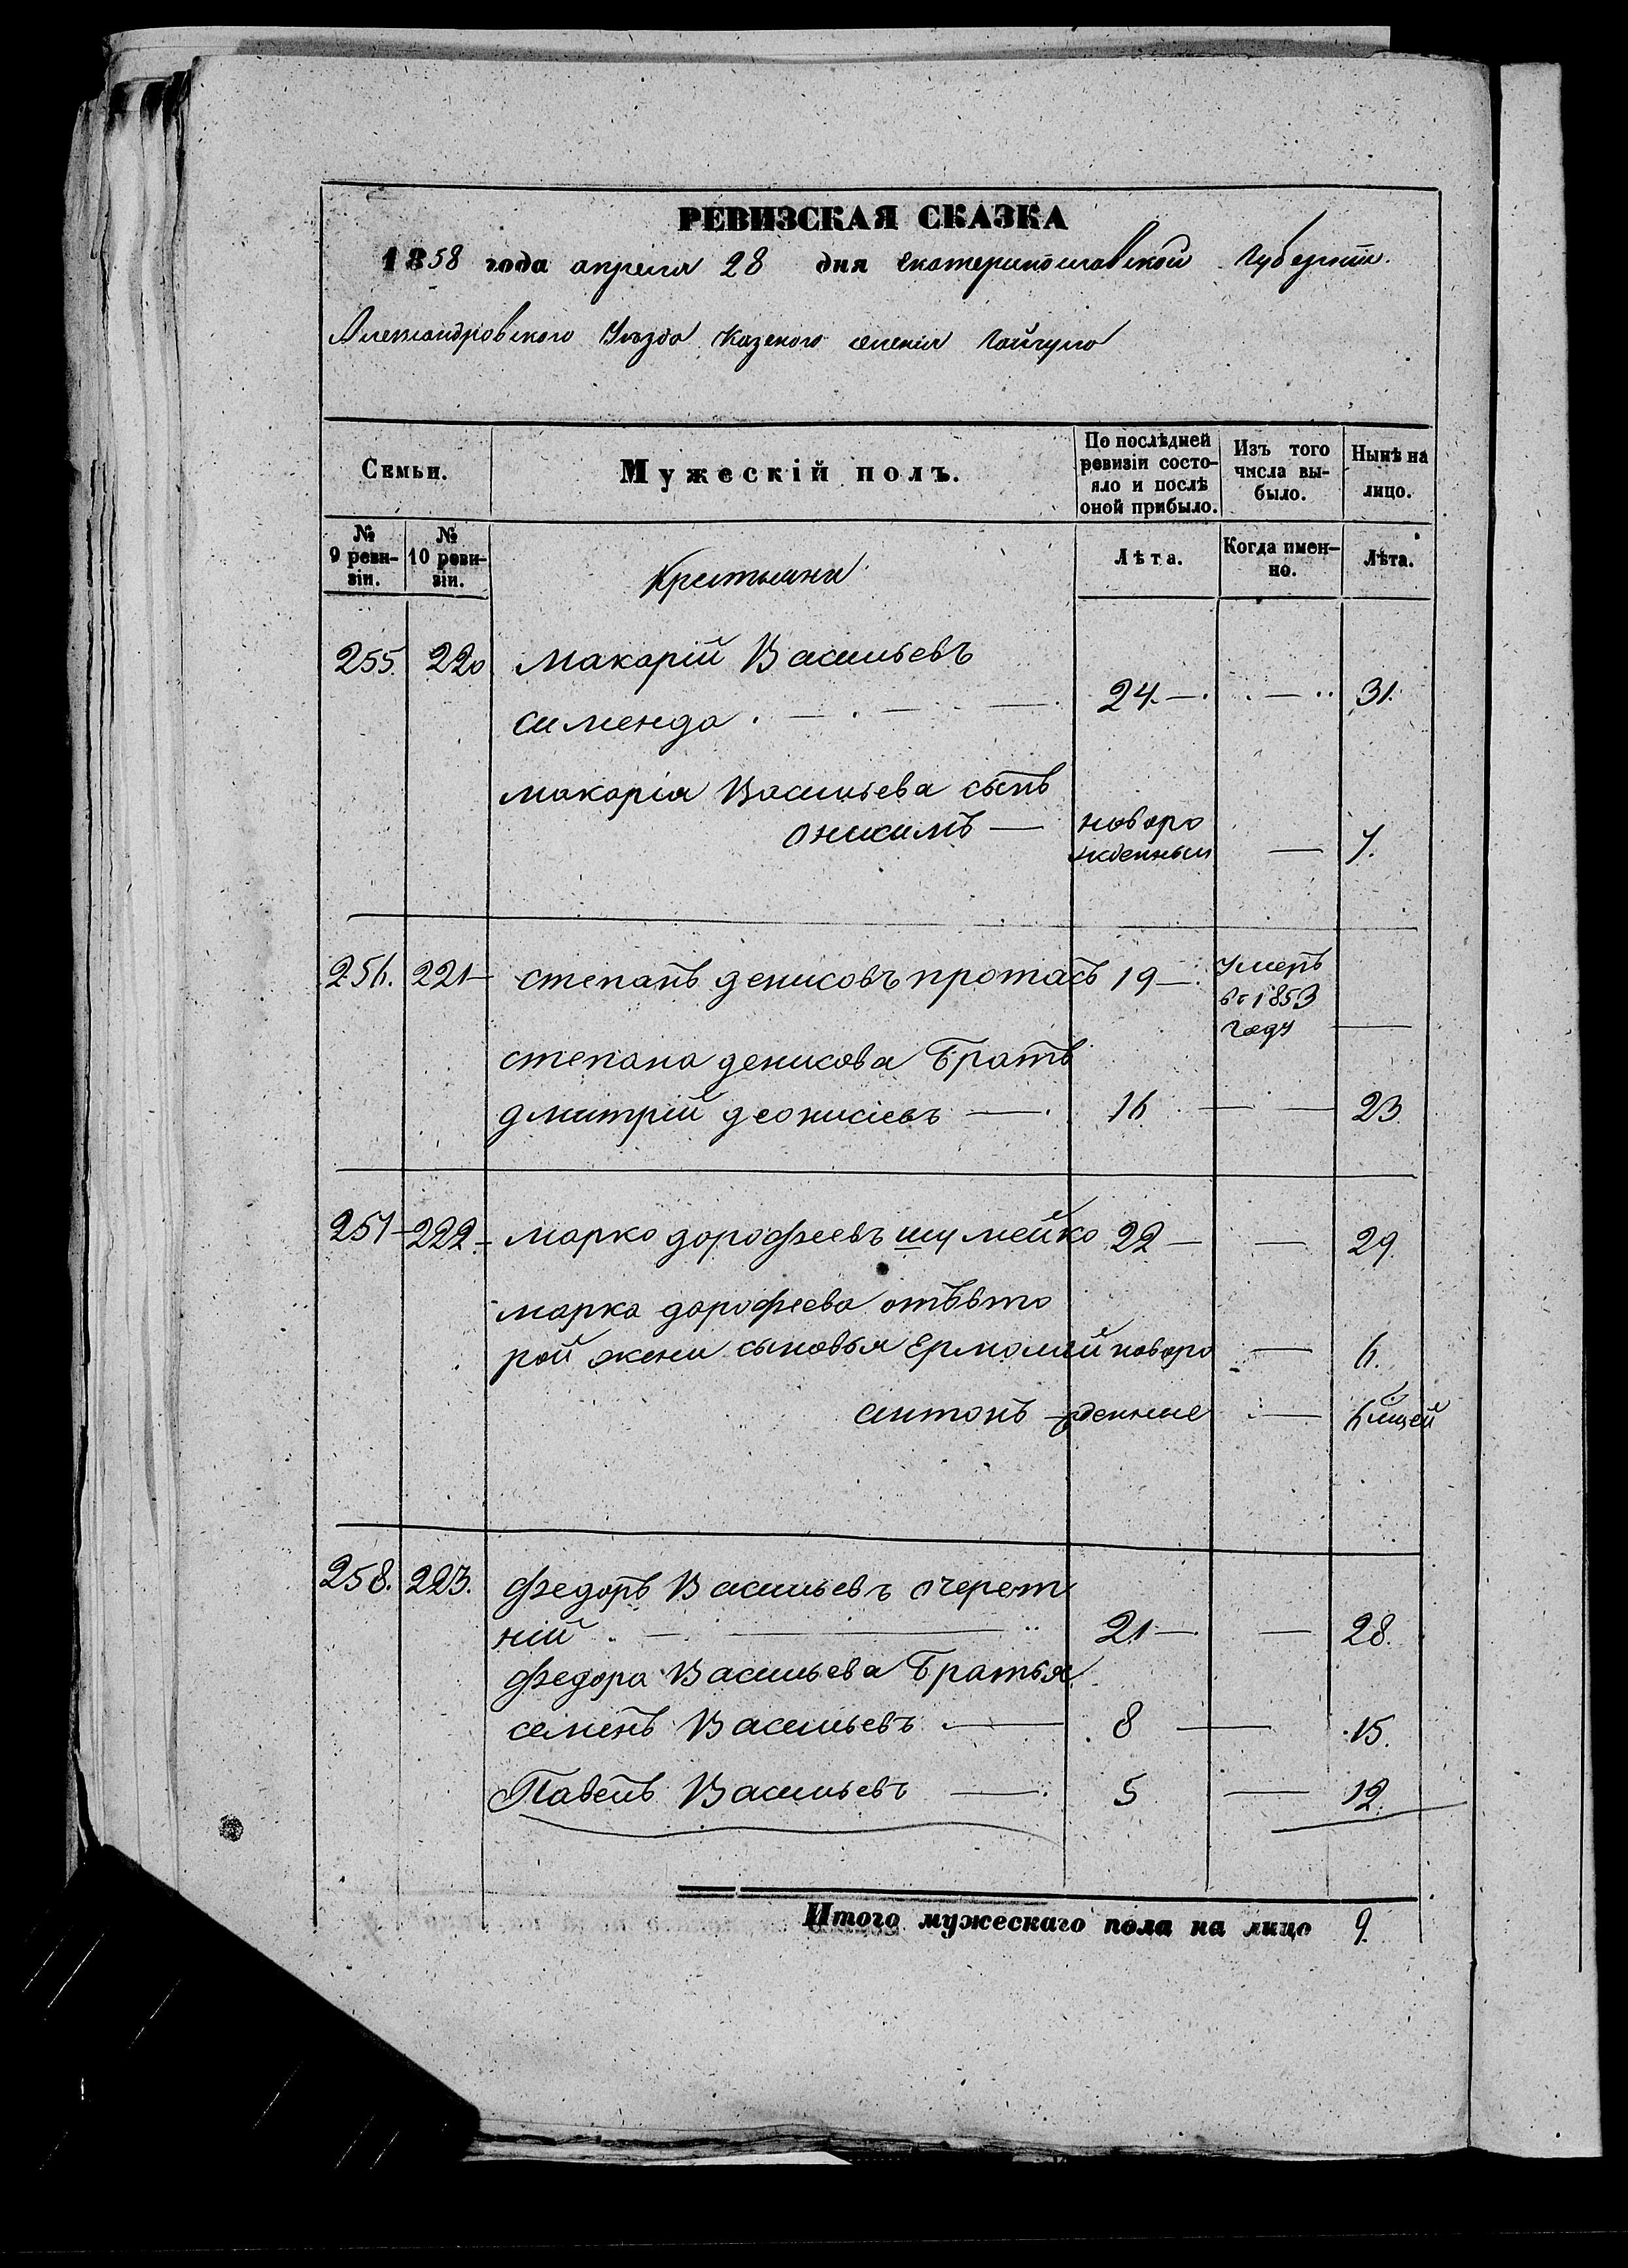 РЕВИЗСКАЯ СКАЗКА
1858 года апреля 28 дня екатеринославской губернiи
Александровского Уезда казеного селенiя Гайчула
Семьи.
Мужескiй полъ.
По послѣдней ревизiи состояло и послѣ оной прибыло.
Изъ того числа выбыло.
Нынѣ на лицо.
№ 9 ревизiи.
№ 10 ревизiи.
Крестьяни
Лѣта.
Когда именно.
Лѣта.
255. 220 Макарiй Васильевъ
сименда 24. — 31.
Макарiя Васильева сынъ
онисимъ — новоро
жденный — 7.
256. 221 — степанъ денисовъ протасъ 19 — умеръ
въ 1853
году —
степана денисова братъ
дмитрiй деонисiевъ — 16. — 23.
257 — 222. — марко дорофеевъ шумейко 22 — — 29
марка дорофеева отъ вто
рой жени сыновья Ермолай новоро — 6.
антонъ — жденние — 6 мцей
258. 223. федоръ Васильевъ очерет
нiй 21 — — 28.
федора Васильева братья
семенъ Васильевъ — 8 — 15.
Павелъ Васильевъ — 5 — 12.
Итого мужескаго пола на лицо 9.